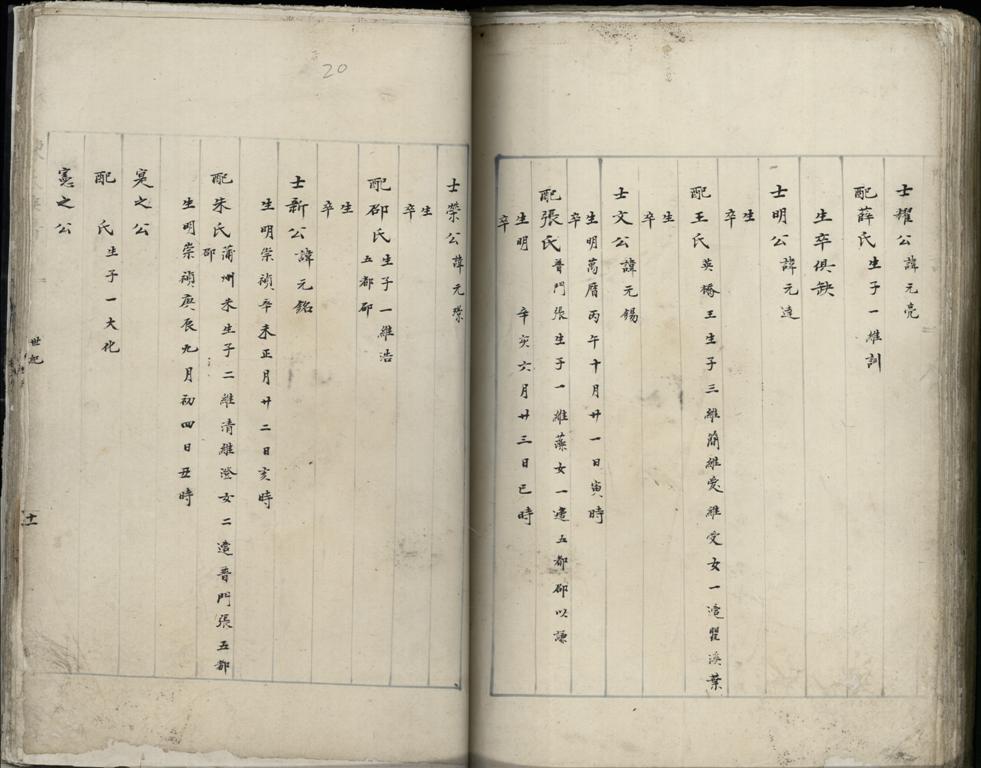 士耀公諱元亮
配薛氏生子一維訓
生卒俱缺
士明公諱元逵
生
卒
配王氏英橋王生子三維簡維愛維受女一適瞿溪葉
生
卒
士文公諱元錫
生明萬曆丙午十月廿一日寅時
卒
配張氏普門張生子一維藻女一適五都邵以謙
生明
卒 辛亥六月廿三日巳時
士榮公諱元
生
卒
配邵氏生子一維浩
五都邵
生
卒
士新公諱元銘
生明崇禎辛未正月廿二日亥時
配朱氏蒲州朱生子二維清維澄女二適普門張五都
邵
生明崇禎庚辰九月初四日丑時
寞之公
配 氏生子一大化
憲之公
世紀
十一
20